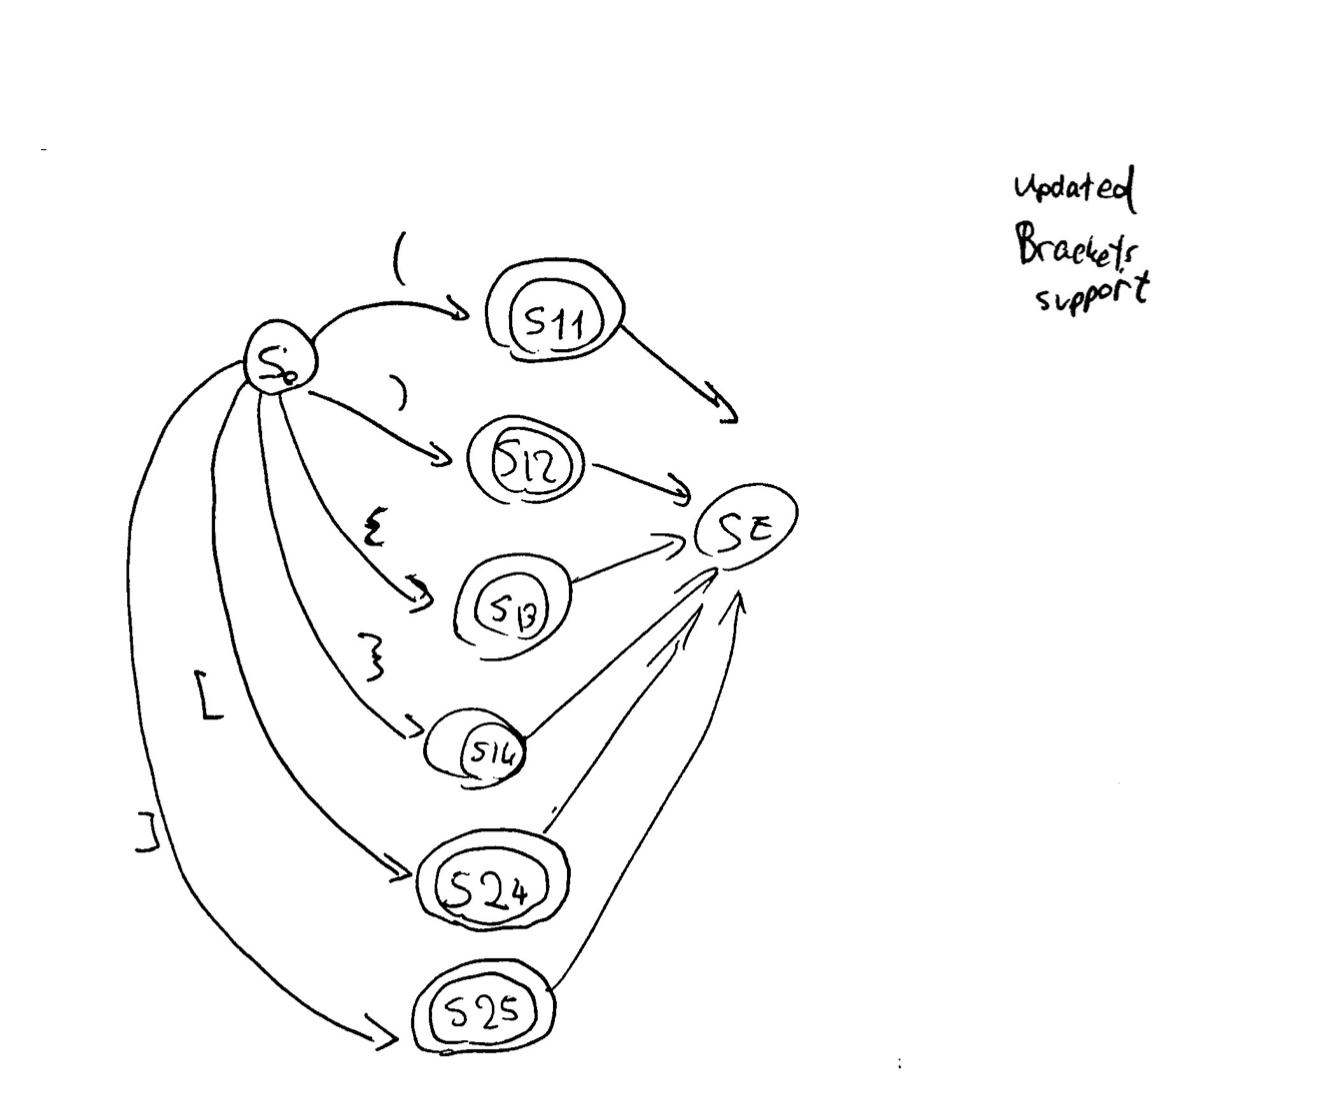 Updated
Brackets
support
(
S11
S0
)
S12
{
SE
S13
}
[
S14
]
S24
S25